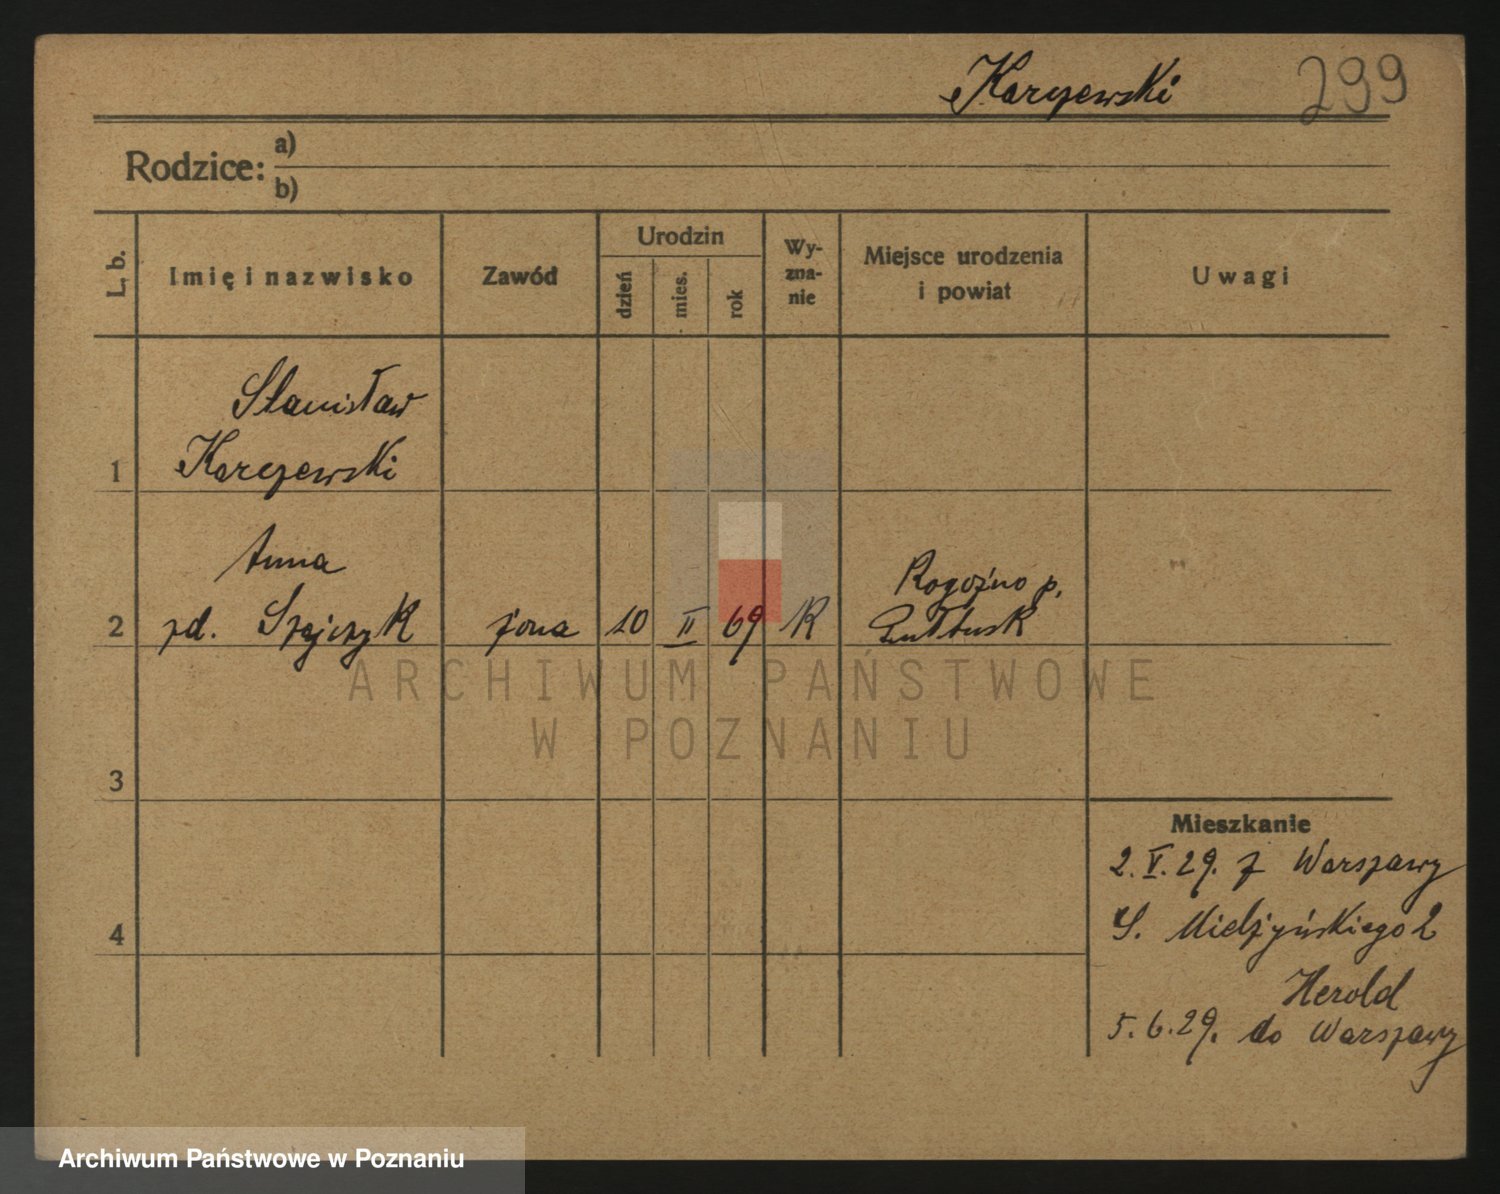 Karczewski 299
Rodzice: a)
b)
L. b.
Imię i nazwisko
Zawód
Urodzin
dzień
mies.
rok
Wy-
zna-
nie
Miejsce urodzenia
i powiat
Uwagi
Stanisław
1 Karczewski
Anna
2 zd. Szajczyk żona 10 II 69 R
Rogoźno p.
Pułtusk
3
4
Mieszkanie
2. V. 29. z Warszawy
S. Mielżyńskiego 2
Herold
5. 6. 29. do Warszawy
ARCHIWUM PAŃSTWOWE
W POZNANIU
Archiwum Państwowe w Poznaniu